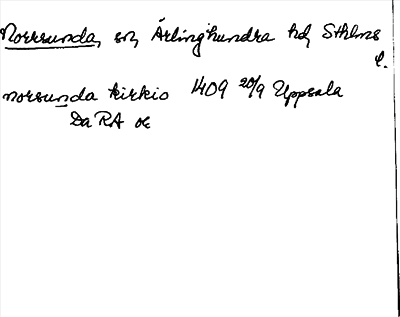 Norrsunda, sn, Ärlinghundra hd, Sthlms
l.
norsunda kirkio 1409 20/9 Uppsala
DaRA oc